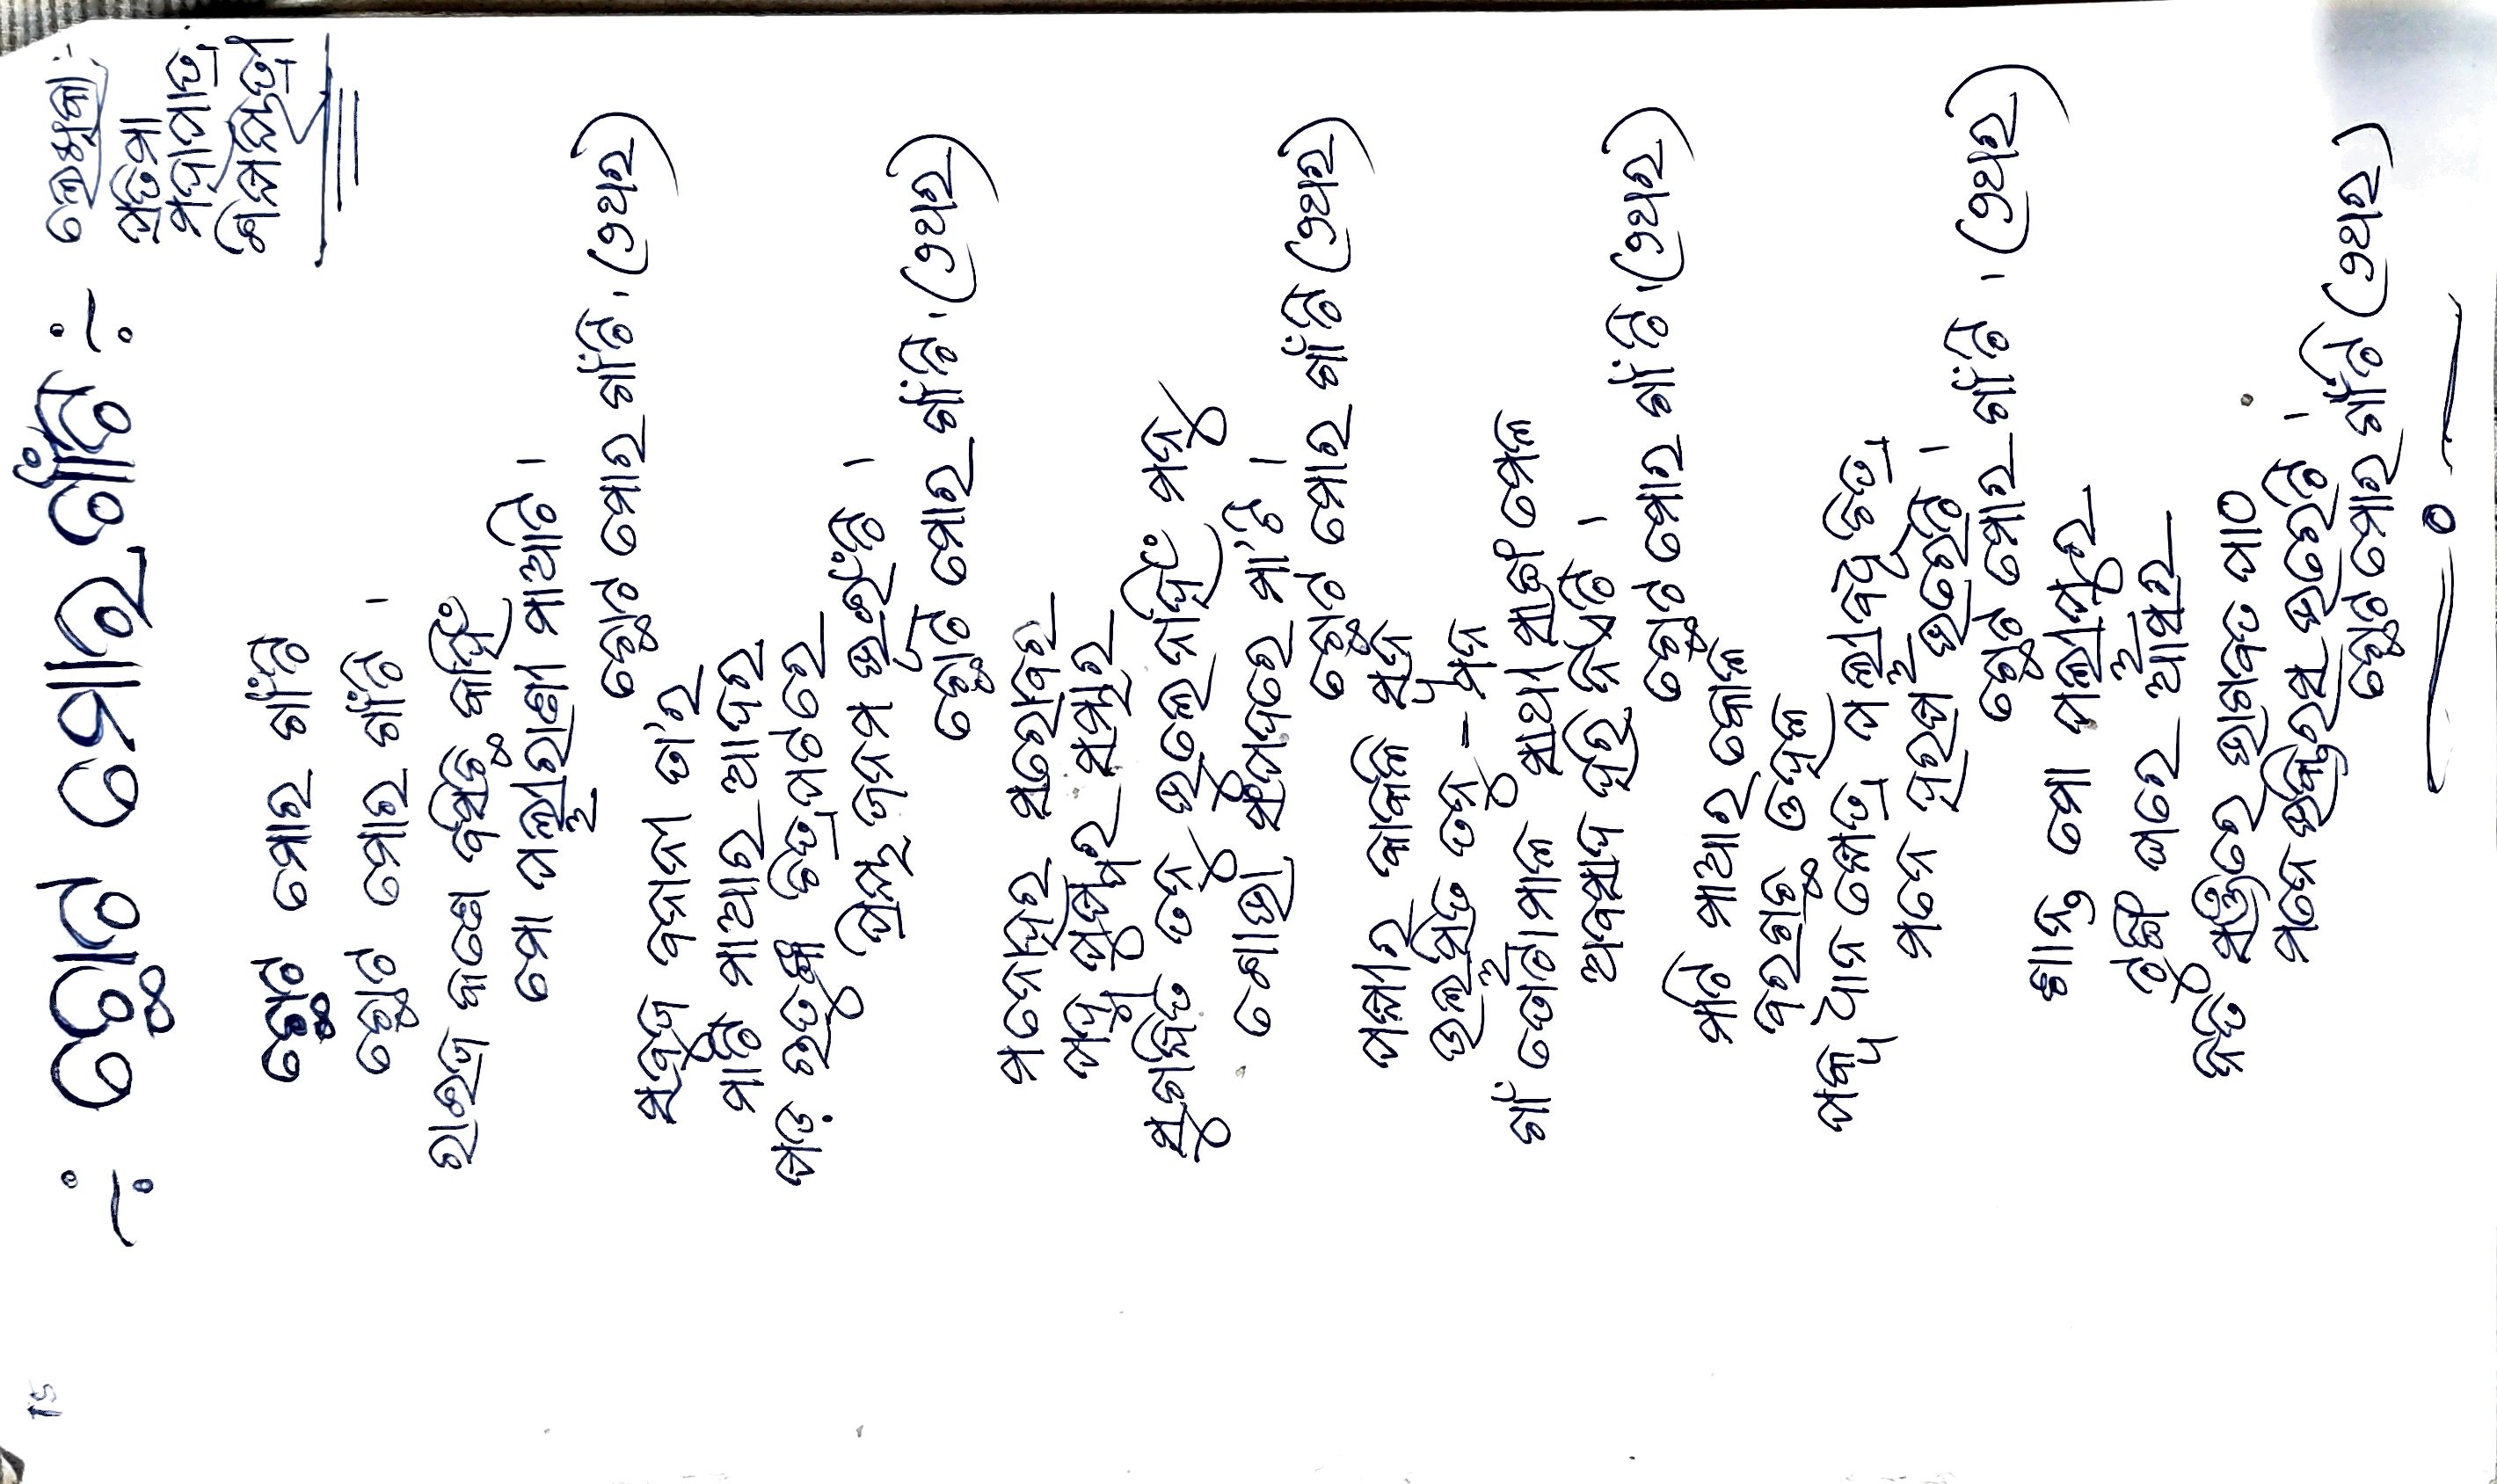 15
-: ଛୋଟ ମୋର ଗାଁଟି :-
ଲେଖିକା:-
ପ୍ରତିମା
ମହାପାତ୍ର
ଶିକ୍ଷୟିତ୍ରୀ
ଛୋଟ ମୋର ଗାଁଟି
ଛୋଟ ମୋର ଗାଁଟି ।
ରାଇଜ କଣେ ବସିଛି କାହିଁ
ମୋ ପଲ୍ଲୀରାଣୀ ମାଆଟି ।
ଛୋଟ ମୋର ଗାଁଟି । (୨ଥର)
ସବୁଜ ବନାନୀ ତା'ର
ମାଟି ମାଆର ଆଦର
ଷଡ଼ ଋତୁଙ୍କ ଚିତ୍ରପଟରେ
ପ୍ରିୟ ଜନମ ଭୂଇଁଟି ।
ଛୋଟ ମୋର ଗାଁଟି । (୨ଥର)
ମନୋହର ସରୋବର
ପଦ୍ମ ପୁଷ୍ପର ସମ୍ଭାର
ସୁଗନ୍ଧିତ ତନୁ ଭୁଲେନାହିଁ ମନୁ
ଶୋଭା ସଂପଦରେ ମା'ଟି ।
ଛୋଟ ମୋର ଗାଁଟି (୨ଥର)
ପକ୍ଷୀର କାକଳି ସ୍ୱନ
ଉଲ୍ଲସିତ ତନୁ - ମନ
ଗାଁ ତୋଟାମାଳ ସାଥୀ ସାଙ୍ଗ ମେଳ
ଅବସାଦ ହରି ନିଏଟି ।
ଛୋଟ ମୋର ଗାଁଟି । (୨ଥର)
ମାଟି ମାଆର କୋଳ
ବରଗଛ ଓହଳ
ପକ୍ୱ ଧାନ କ୍ଷେତ୍ର ପଲ୍ଲୀବଧୂ ଚିତ୍ର
ମନେ ହରଷ ଭରେଟି ।
ଛୋଟ ମୋର ଗାଁଟି । (୨ଥର)
ଶାନ୍ତ ମୋ ପଲ୍ଲୀପୁର
ଟୁଙ୍ଗି ଘରେ ଆସର
ନିତି ସଞ୍ଜରେ ଭାଗବତ ପାଠ
ମନେ ଭକ୍ତିରସ ଭରେଟି ।
ଛୋଟ ମୋର ଗାଁଟି (୨ଥର)